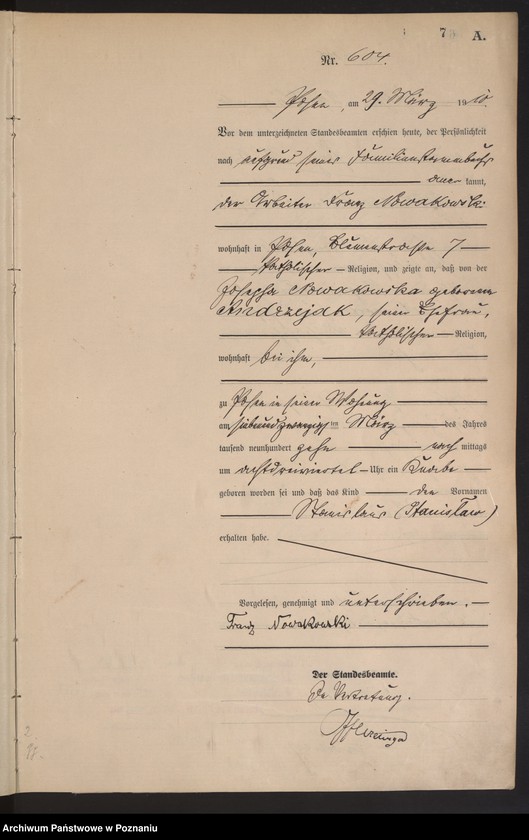 7 A.
Nr. 604.
Posen, am 29. März 1910.
Vor dem unterzeichneten Standesbeamten erschien heute, der Persönlichkeit
nach aufgrund seines Familienstammbuchs
kannt,
der Arbeiter Franz Nowakowski
wohnhaft in Posen, Blumenstrasse 7
katholischer Religion, und zeigte an, daß von der
Josepha Nowakowska geborenen
Andrzejak, seiner Ehefrau,
katholischer Religion,
wohnhaft bei ihm,
zu Posen in seiner Wohnung
am siebenundzwanzigsten März des Jahres
tausend neunhundert zehn nach mittags
um achtdreiviertel Uhr ein Knabe
geboren worden sei und daß das Kind den Vornamen
Stanislaus (Stanisław)
erhalten habe.
Vorgelesen, genehmigt und unterschrieben.
Franz Nowakowski
Der Standesbeamte.
In Vertretung.
Archiwum Państwowe w Poznaniu